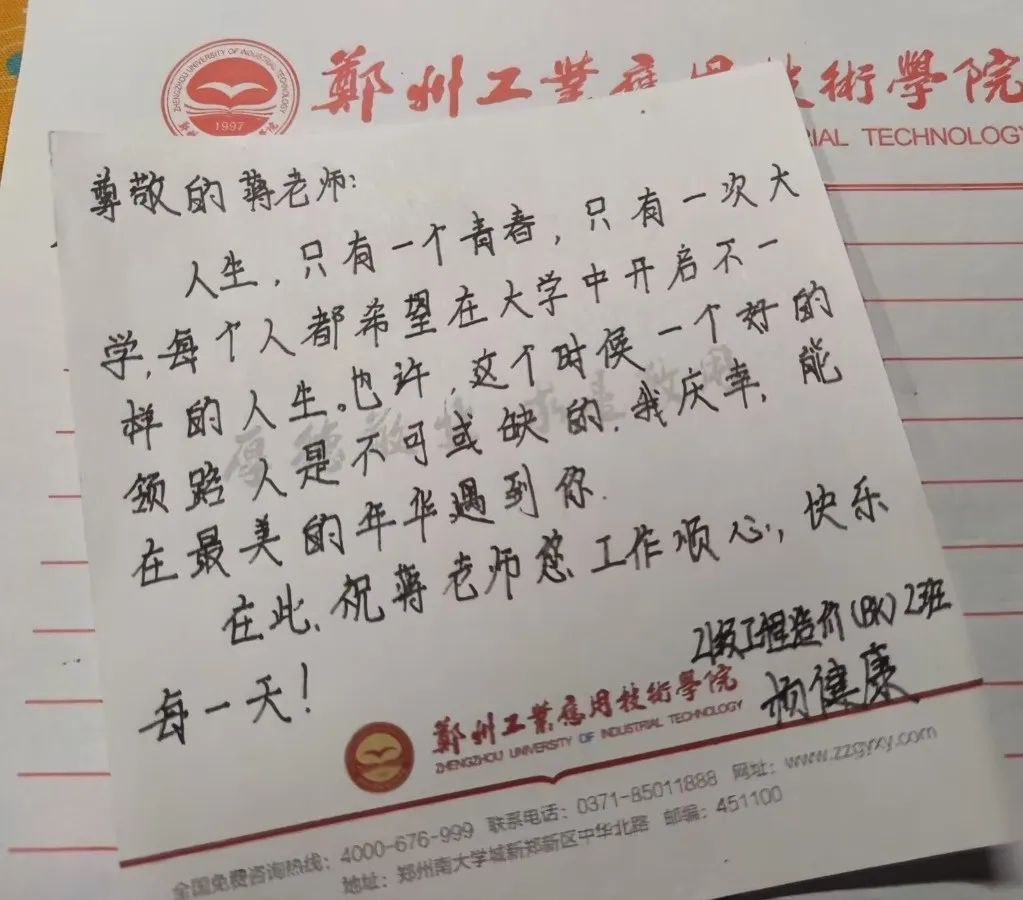 鄭州工業應用技術學院
ZHENGZHOU UNIVERSITY OF INDUSTRIAL TECHNOLOGY
1997
IAL TECHNOLOGY
尊敬的蒋老师:
人生,只有一个青春,只有一次大
学,每个人都希望在大学中开启不一
样的人生。也许,这个时候一个好的
领路人是不可或缺的.我庆幸,能
在最美的年华遇到你.
在此,祝蒋老师您工作顺心,快乐
每一天!
21级工程造价(BK)2班
杨健康
鄭州工業應用技術學院
ZHENGZHOU UNIVERSITY OF INDUSTRIAL TECHNOLOGY
全国免费咨询热线:4000-676-999 联系电话:0371-85011888 网址:www.zzgyxy.com
地址:郑州南大学城新郑新区中华北路 邮编:451100